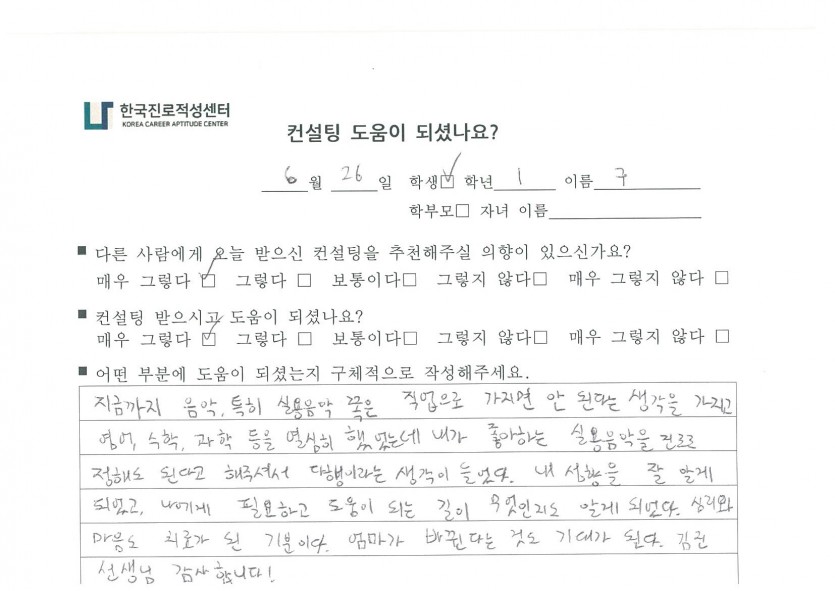 한국진로적성센터
KOREA CAREER APTITUDE CENTER
컨설팅 도움이 되셨나요?
6월 26일 학생☑ 학년 1 이름 구
학부모□ 자녀 이름
■ 다른 사람에게 오늘 받으신 컨설팅을 추천해주실 의향이 있으신가요?
매우 그렇다 ☑ 그렇다 □ 보통이다□ 그렇지 않다□ 매우 그렇지 않다 □
■ 컨설팅 받으시고 도움이 되셨나요?
매우 그렇다 ☑ 그렇다 □ 보통이다□ 그렇지 않다□ 매우 그렇지 않다 □
■ 어떤 부분에 도움이 되셨는지 구체적으로 작성해주세요.
지금까지 음악, 특히 실용음악 쪽은 직업으로 가지면 안 된다는 생각을 가지고
영어, 수학, 과학 등을 열심히 했었는데 내가 좋아하는 실용음악을 진로로
정해도 된다고 해주셔서 다행이라는 생각이 들었다. 내 성향을 잘 알게
되었고, 나에게 필요하고 도움이 되는 길이 무엇인지도 알게 되었다. 심리와
마음도 치료가 된 기분이다. 엄마가 바뀐다는 것도 기대가 된다. 김권
선생님 감사합니다!